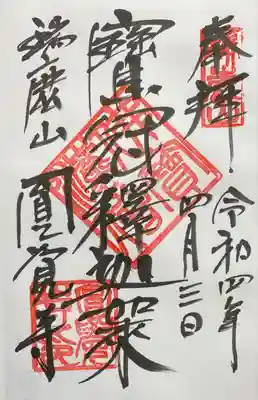 奉拝
令和四年
四月三日
寶冠釋迦架
瑞鹿山
圓覚寺